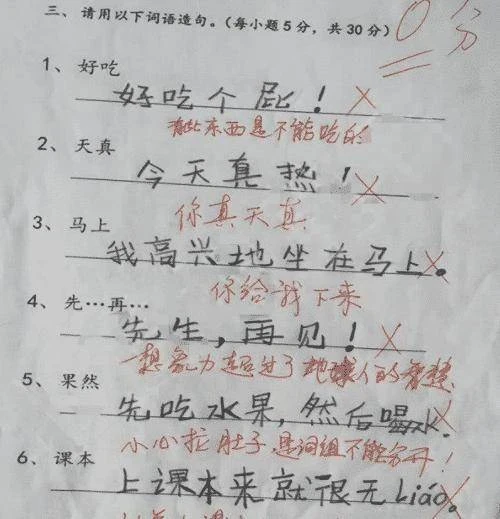 三、请用以下词语造句。（每小题5分，共30分）
0分
1、好吃
好吃个屁！
有些东西是不能吃的
2、天真
今天真热！
你真天真
3、马上
我高兴地坐在马上。
你给我下来
4、先…再…
先生，再见！
想象力超过了地球人的智慧
5、果然
先吃水果，然后喝水。
小心拉肚子，是词组不能分开！
6、课本
上课本来就很无Liáo。